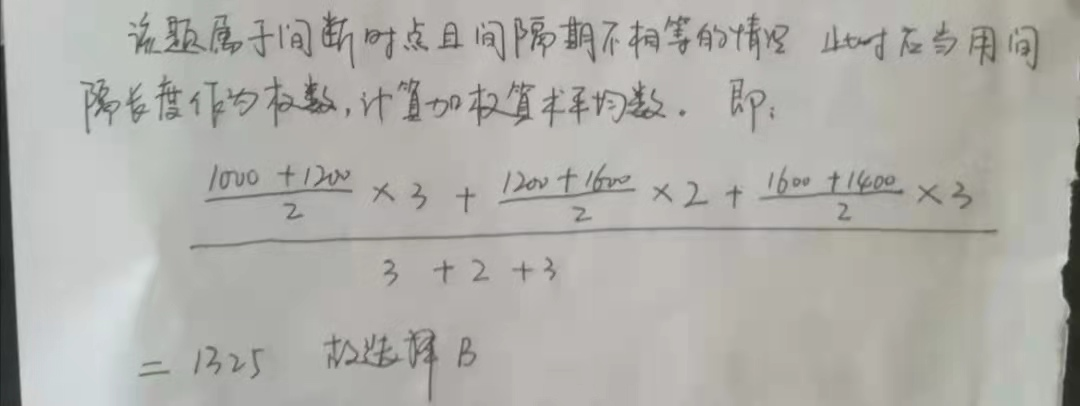 该题属于间断时点且间隔期不相等的情况 此时应当用间
隔长度作为权数,计算加权算术平均数. 即:
\frac{\frac{1000+1200}{2}×3+\frac{1200+1600}{2}×2+\frac{1600+1400}{2}×3}{3+2+3}
=1325 故选择B